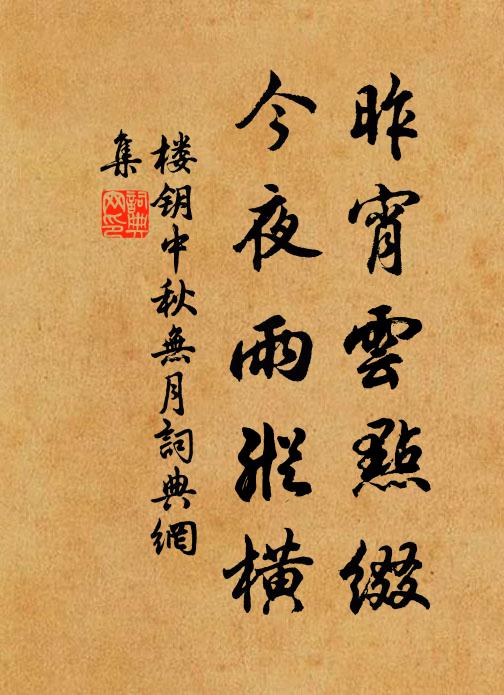 昨宵雲點綴
今夜雨縱橫
楼钥中秋無月詞典網
集
詞典
网印